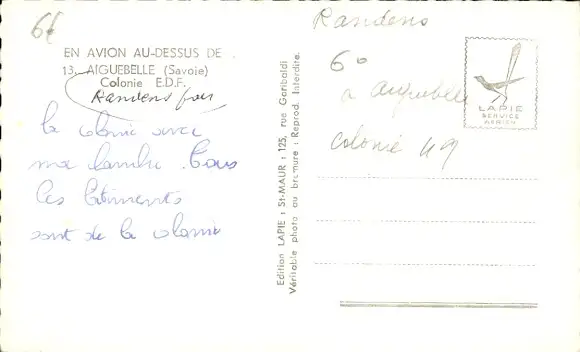 6f
EN AVION AU-DESSUS DE
13. AIGUEBELLE (Savoie)
Colonie E.D.F.
Randens
la colonie avec
ma chambre. Tous
les bâtiments
sont de la colonie
Edition LAPIE : St-MAUR : 125, rue Garibaldi
Véritable photo au bromure : Reprod. Interdite.
Randens
6°
a aiguebelle
colonie 49
LAPIE
SERVICE
AERIEN